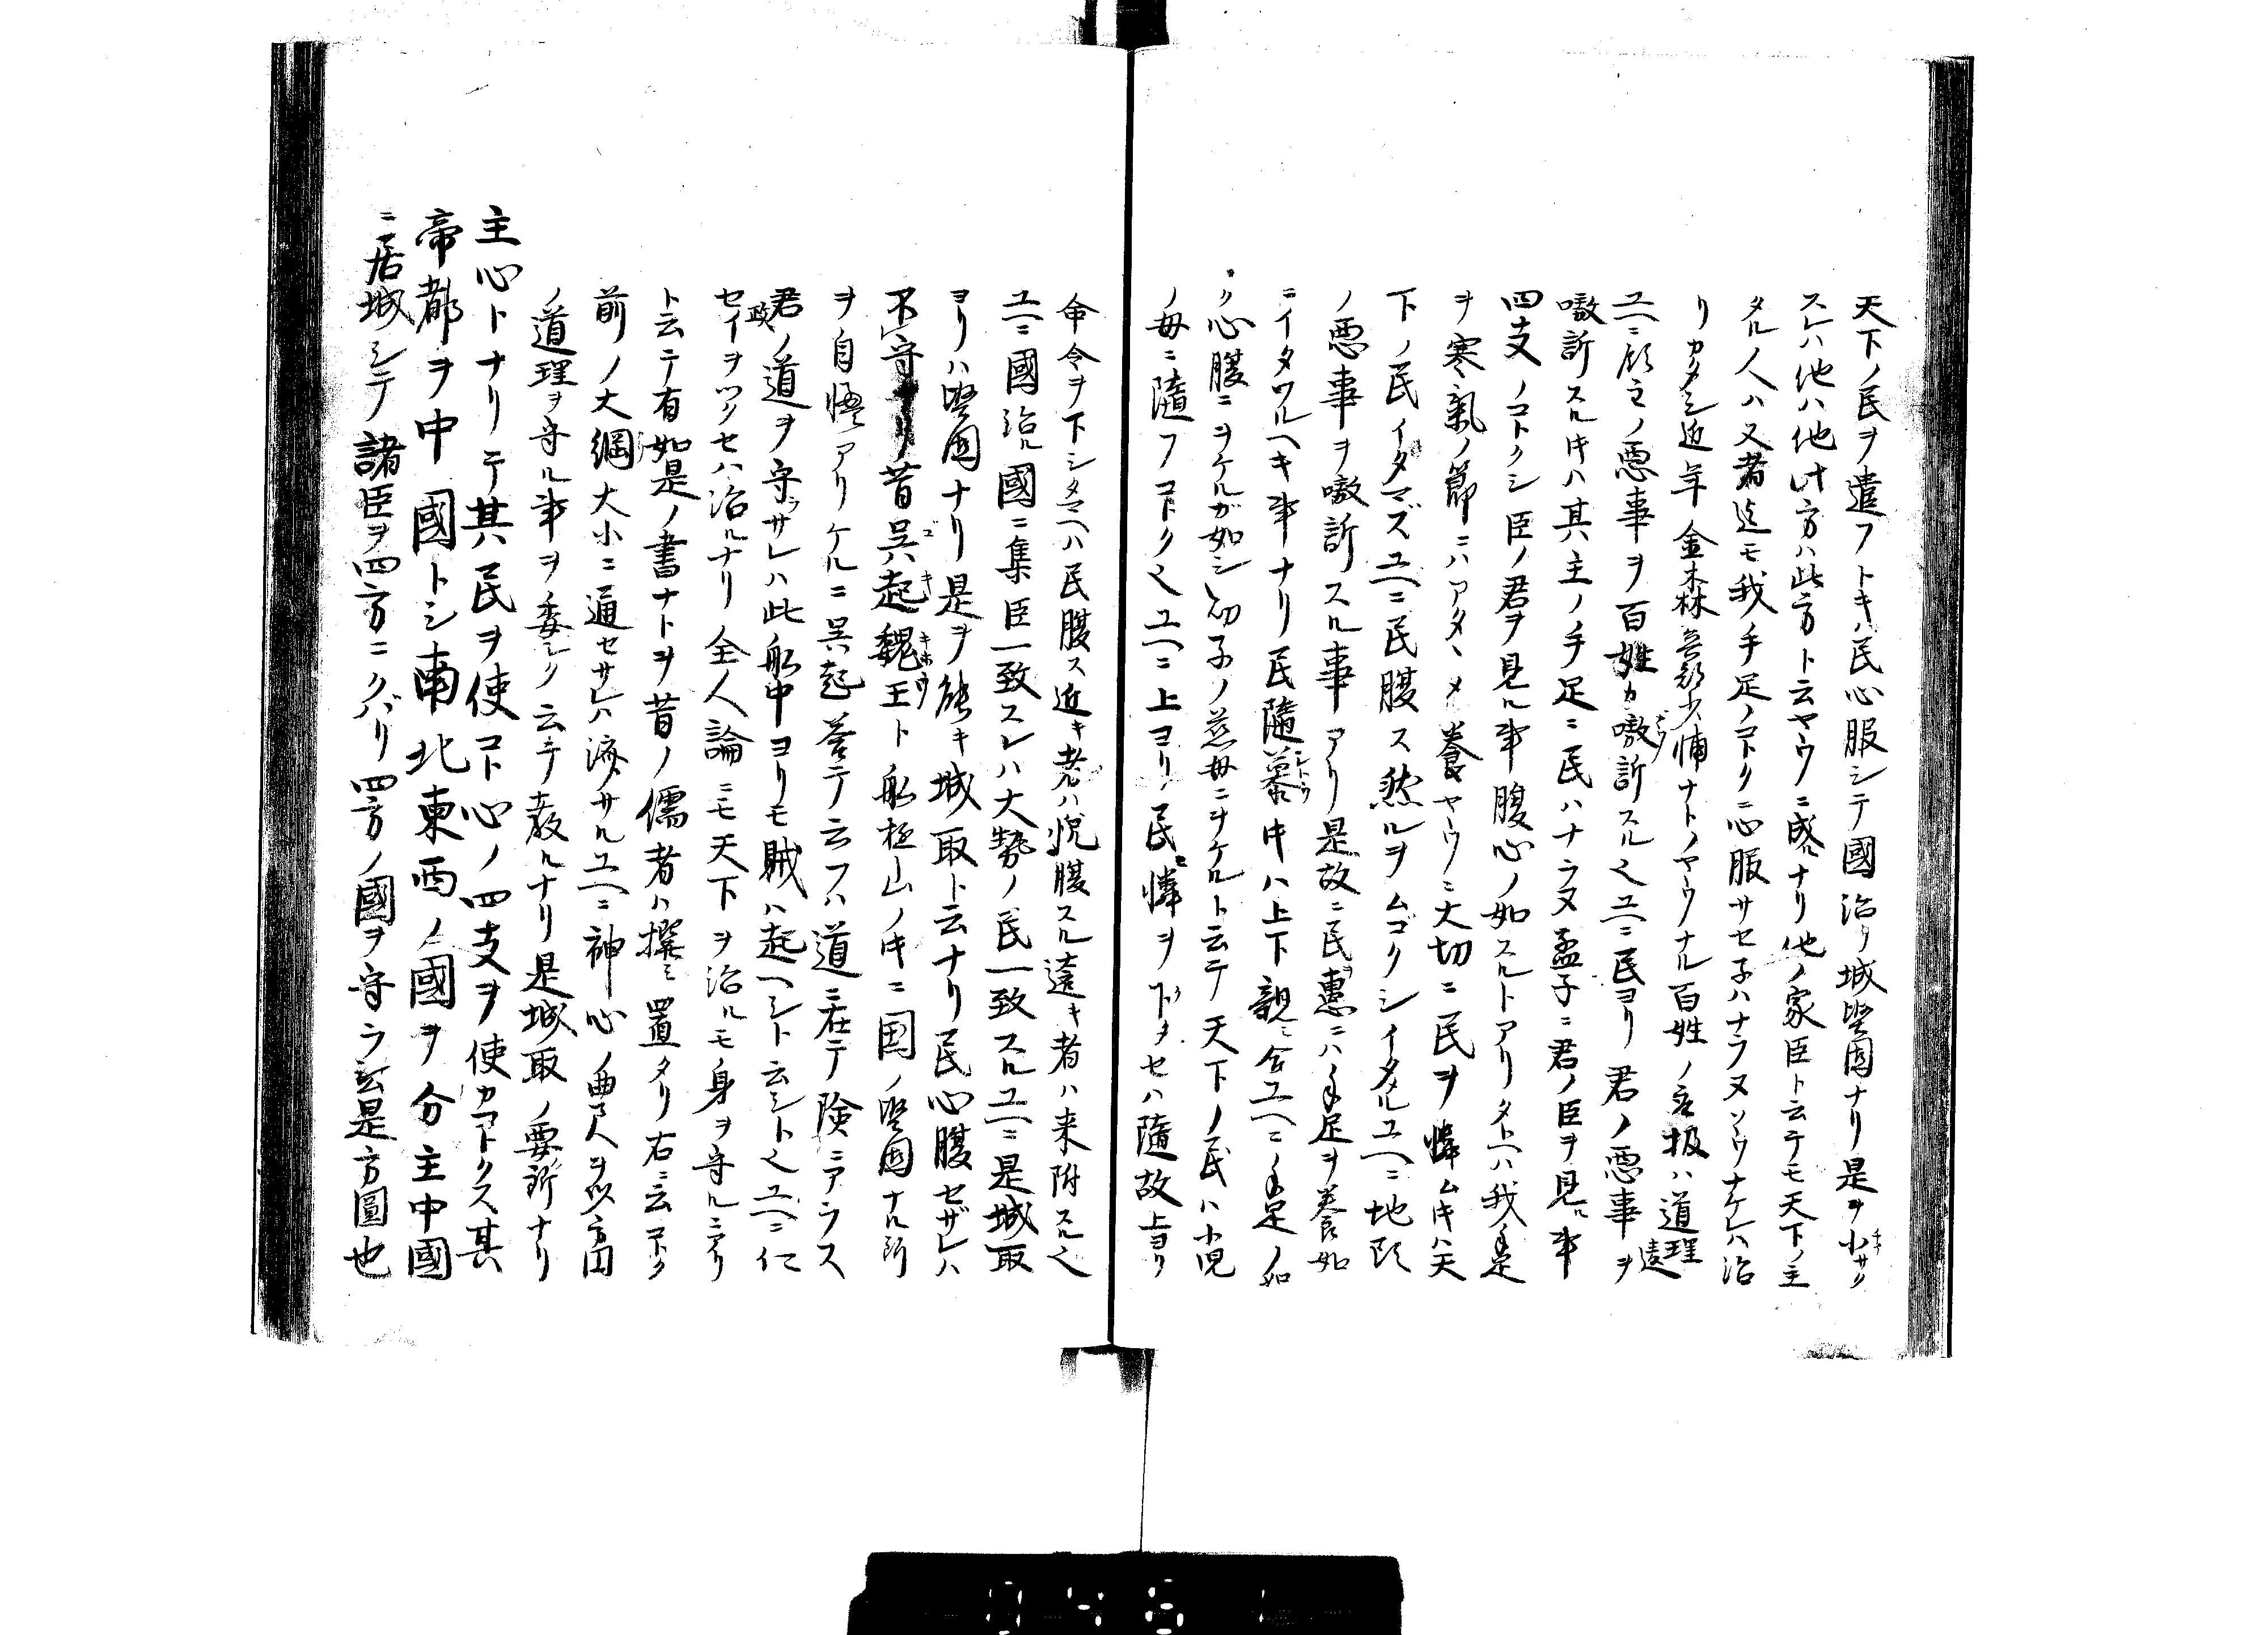 天下ノ民ヲ遣フトキハ民心服シテ國治リ城堅固ナリ是ヲ小サク
スレハ他ハ他此方ハ此方ト云ヤウニ成ナリ他ノ家臣ト云テモ天下ノ主
タル人ハ又者迄モ我手足ノコトクニ心服サセ子ハナラヌソウナケレハ治
リカタシ近年金森兵部少輔ナトノヤウナル百姓ノ取扱ハ道理遠
ユヘニ領主ノ悪事ヲ百姓カ嗷訴スル也ユヘニ民ヨリ君ノ悪事ヲ
嗷訴スル時ハ其主ノ手足ニ民ハナラヌ孟子ニ君ノ臣ヲ見ル事
四支ノコトクシ臣ノ君ヲ見ル事腹心ノ如スルトアリタトヘハ我手足
ヲ寒氣ノ節ニハアタヽメ養ヤウニ大切ニ民ヲ憐ム時ハ天
下ノ民イタマズユヘニ民腹ス然ルヲムゴクシイタメルユヘニ地頭
ノ悪事ヲ嗷訴スル事アリ是故ニ民惠ニハ手足ヲ養如
ニイタワルヘキ事ナリ民隨慕時ハ上下親ミ合ユヘニ手足ノ如
ク心腹ニヲケルガ如シ幼子ノ慈母ニヲケルト云テ天下ノ民ハ小児
ノ母ニ隨フコトク也ユヘニ上ヨリ民ニ憐ヲ下タセハ隨故上ヨリ
命令ヲ下シタマヘハ民腹ス近キ者ハ悦腹スル遠キ者ハ来附スル也
ユヘニ國治ル國ニ集臣一致スレハ大勢ノ民一致スルユヘニ是城取
ヨリハ堅固ナリ是ヲ能キ城取ト云ナリ民心腹セザレハ
不守リ昔呉起魏王ト船極山ノ時ニ国ノ堅固ナル所
ヲ自慢アリケルニ呉起答テ云フハ道ニ在テ険ニアラス
君ノ道ヲ守ラサレハ此船中ヨリモ賊ハ起ヘシト云シト也ユヘニ仁
政セイヲツクセハ治ルナリ全人論ニモ天下ヲ治ルモ身ヲ守ルニアリ
ト云テ有如是ノ書ナトヲ昔ノ儒者ハ撰ミ置タリ右ニ云コトク
前ノ大綱大小ニ通セサレハ濟サルユヘニ神心ノ曲尺ヲ以方円
ノ道理ヲ守ル事ヲ委シク云テ教ルナリ是城取ノ要所ナリ
主心トナリテ其民ヲ使コト心ノ四支ヲ使カコトクス其
帝都ヲ中國トシ南北東西ノ國ヲ分主中國
ニ居城シテ諸臣ヲ四方ニクバリ四方ノ國ヲ守ラ云是方圓也